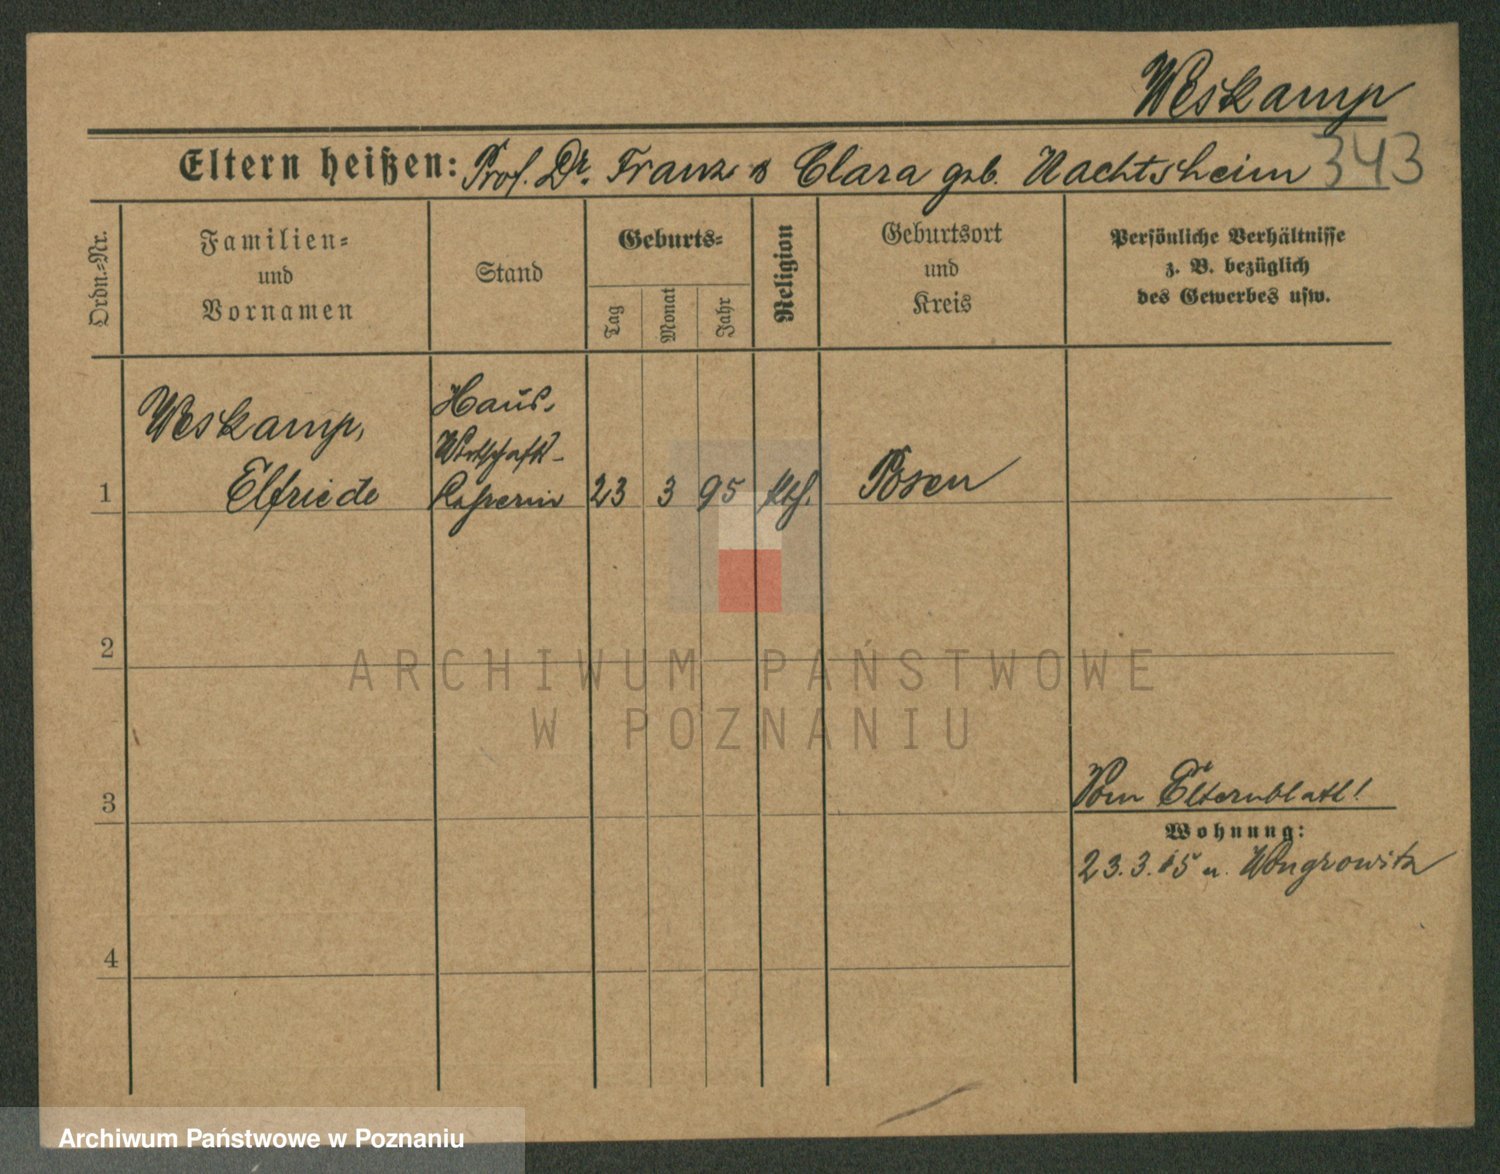 Weskamp
Eltern heißen: Prof. Dr. Franz & Clara geb. Nachtsheim 343
Ordn.-Nr.
Familien-
und
Vornamen
Stand
Geburts-
Tag
Monat
Jahr
Religion
Geburtsort
und
Kreis
Persönliche Verhältnisse
z. B. bezüglich
des Gewerbes usw.
Weskamp,
Haus-
Wirtschafts-
1 Elfriede Lehrerin 23 3 95 kth. Posen
2
ARCHIWUM PAŃSTWOWE
W POZNANIU
Vom Elternblatt!
3
Wohnung:
23.3.15 n. Wongrowitz
4
Archiwum Państwowe w Poznaniu